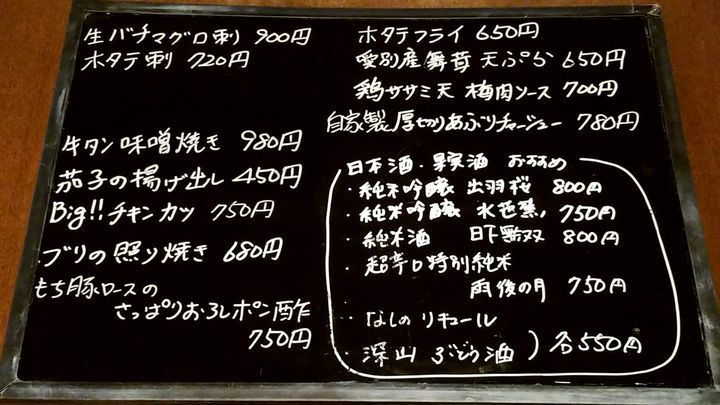 生バチマグロ刺 900円
ホタテ刺 720円
牛タン味噌焼き 980円
茄子の揚げ出し 450円
Big!!チキンカツ 750円
ブリの照り焼き 680円
もち豚ロースの
さっぱりおろしポン酢
750円
ホタテフライ 650円
愛別産舞茸天ぷら 650円
鶏ササミ天 梅肉ソース 700円
自家製厚切りあぶりチャーシュー 780円
日本酒・果実酒 おすすめ
・純米吟醸 出羽桜 800円
・純米吟醸 水芭蕉 750円
・純米酒 日下無双 800円
・超辛口特別純米
雨後の月 750円
・なしのリキュール
・深山ぶどう酒 ) 各550円